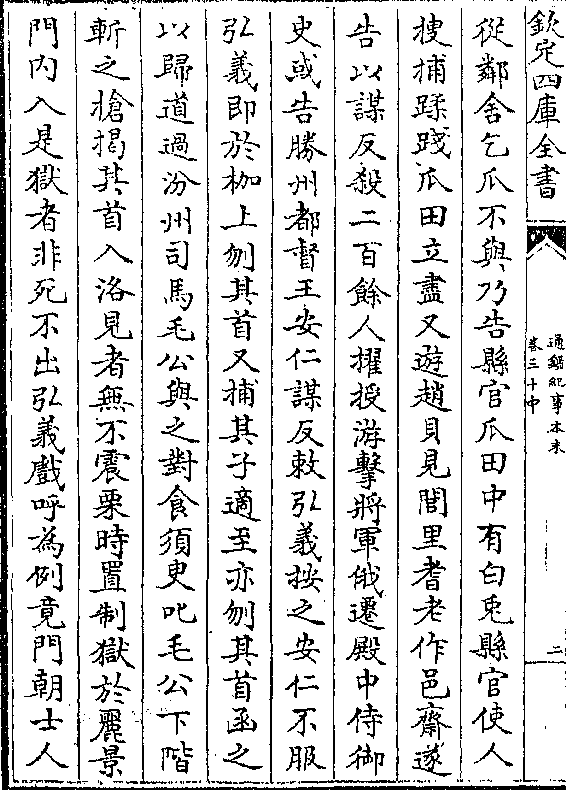 欽定四庫全書
通鑑紀事本末
卷三十中
二
從鄰舍乞瓜不與乃告縣官瓜田中有白兎縣官使人
搜捕蹂踐瓜田立盡又遊趙貝見閭里耆老作邑齋遂
告以謀反殺二百餘人擢授游擊將軍俄遷殿中侍御
史或告勝州都督王安仁謀反敕弘義按之安仁不服
弘義即於枷上刎其首又捕其子適至亦刎其首函之
以歸道過汾州司馬毛公與之對食須臾叱毛公下階
斬之槍揭其首入洛見者無不震栗時置制獄於麗景
門内入是獄者非死不出弘義戲呼為例竟門朝士人